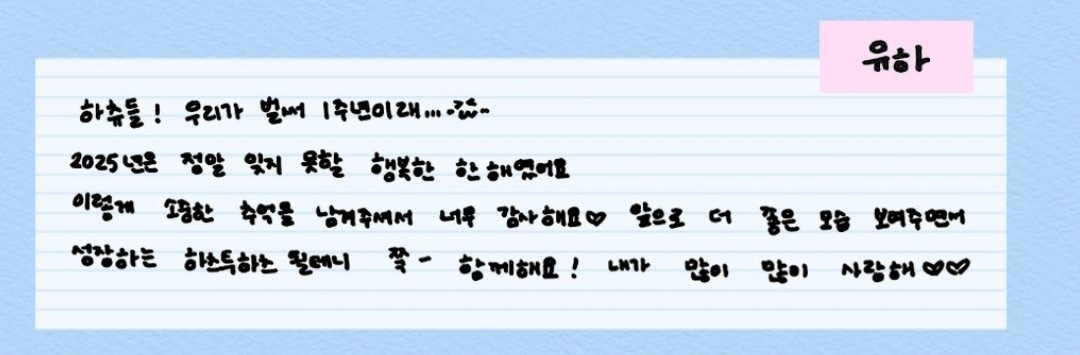 유하
하츄들! 우리가 벌써 1주년이래...
2025년은 정말 잊지 못할 행복한 한 해였어요
이렇게 소중한 추억을 남겨주셔서 너무 감사해요♡ 앞으로 더 좋은 모습 보여주면서
성장하는 하츠투하츠 될테니 쭉- 함께해요! 내가 많이 많이 사랑해♡♡